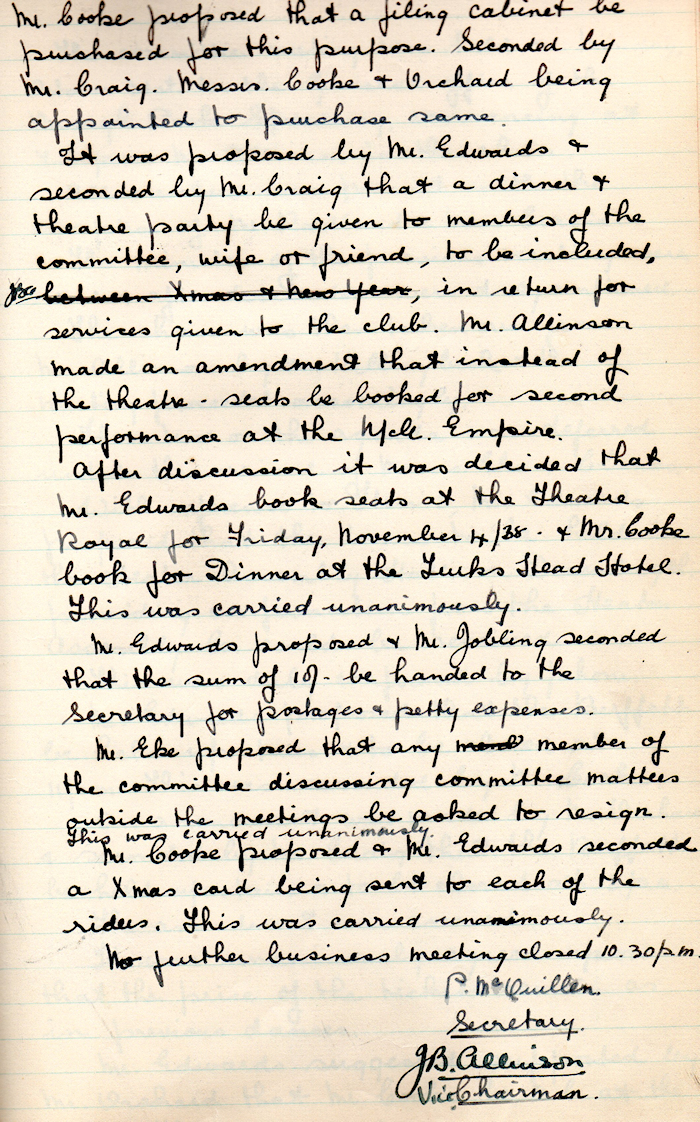 Mr. Cooke proposed that a filing cabinet be
purchased for this purpose. Seconded by
Mr. Craig. Messrs. Cooke & Orchard being
appointed to purchase same.
It was proposed by Mr. Edwards &
seconded by Mr. Craig that a dinner &
theatre party be given to members of the
committee, wife or friend, to be included,
JBA between Xmas & New Year, in return for
services given to the club. Mr. Allinson
made an amendment that instead of
the theatre - seats be booked for second
performance at the N/cle. Empire.
After discussion it was decided that
Mr. Edwards book seats at the Theatre
Royal for Friday, November 4/38 - & Mr. Cooke
book for Dinner at the Turks Head Hotel.
This was carried unanimously.
Mr. Edwards proposed & Mr. Jobling seconded
that the sum of 10/- be handed to the
Secretary for postages & petty expenses.
Mr. Eke proposed that any member of
the committee discussing committee matters
outside the meetings be asked to resign.
This was carried unanimously.
Mr. Cooke proposed & Mr. Edwards seconded
a Xmas card being sent to each of the
riders. This was carried unanimously.
No further business meeting closed 10.30 p.m.
P. McQuillen.
Secretary.
JB. Allinson
Vice Chairman.